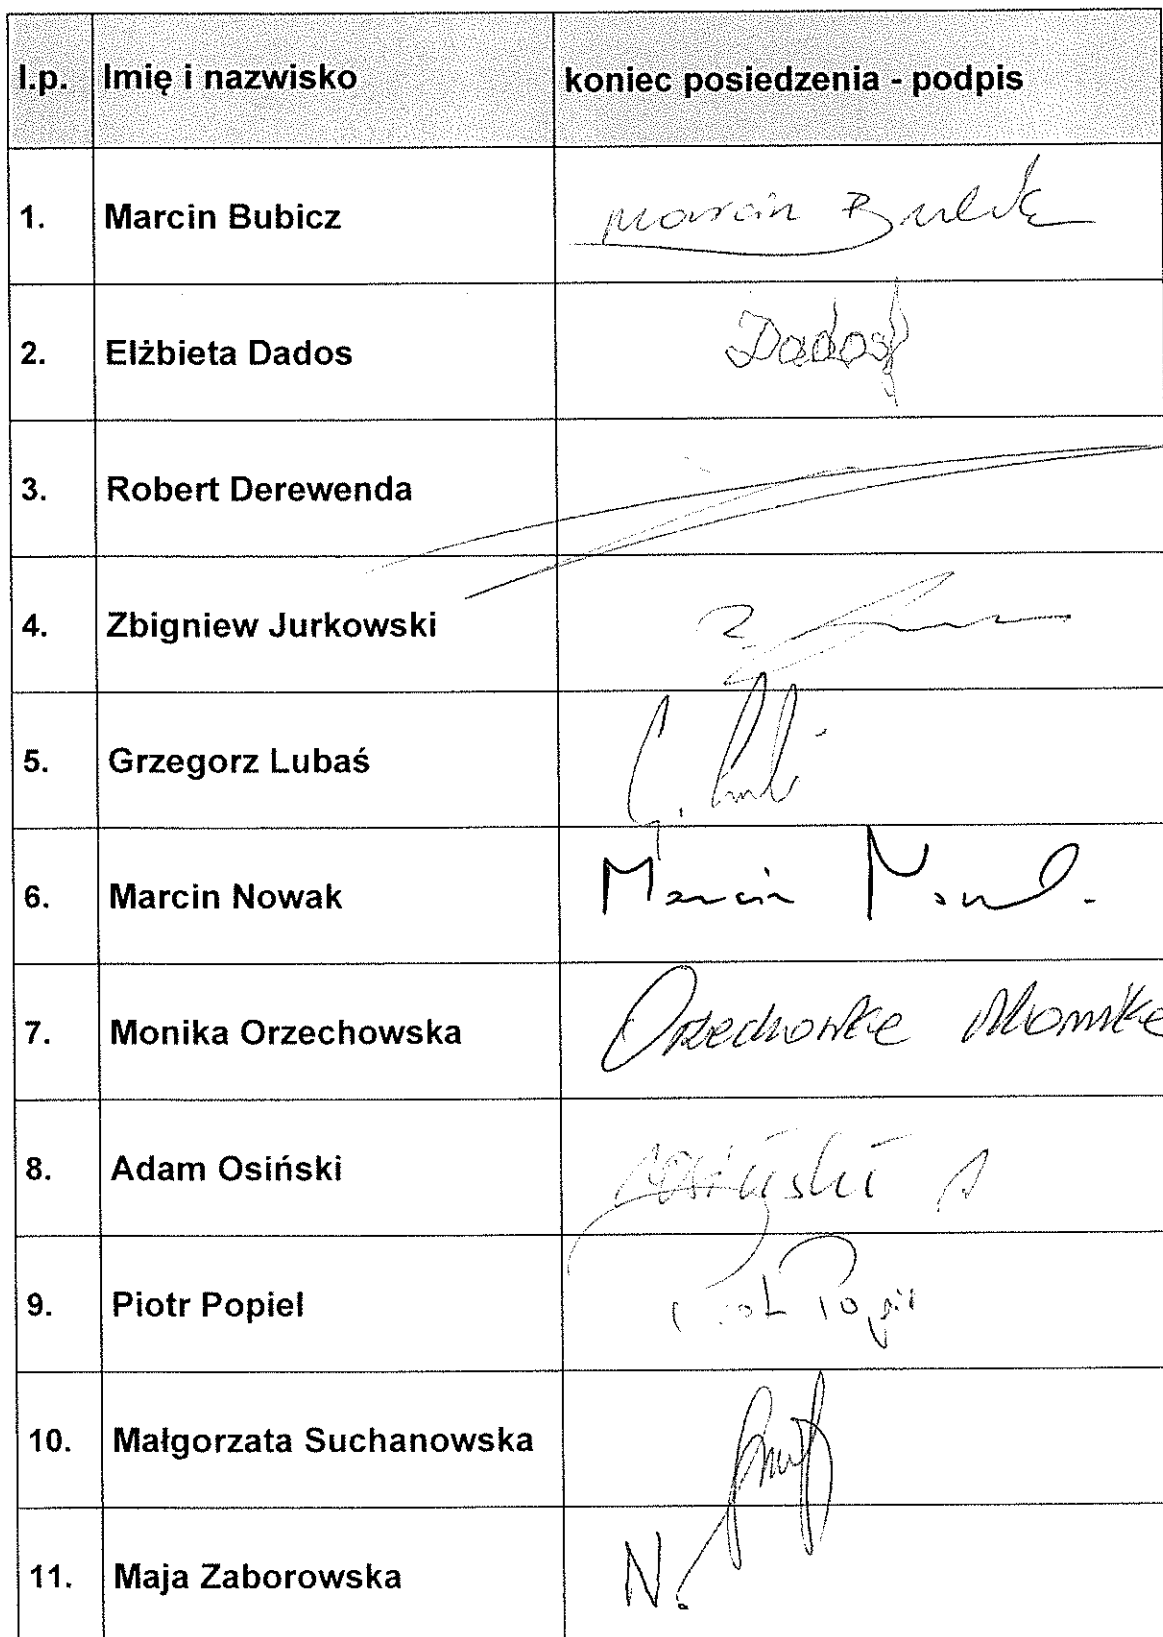 l.p. Imię i nazwisko koniec posiedzenia - podpis
1. Marcin Bubicz Marcin
2. Elżbieta Dados Dados
3. Robert Derewenda
4. Zbigniew Jurkowski
5. Grzegorz Lubaś G.
6. Marcin Nowak Marcin
7. Monika Orzechowska Orzechowska Monika
8. Adam Osiński Osiński A
9. Piotr Popiel
10. Małgorzata Suchanowska
11. Maja Zaborowska N.